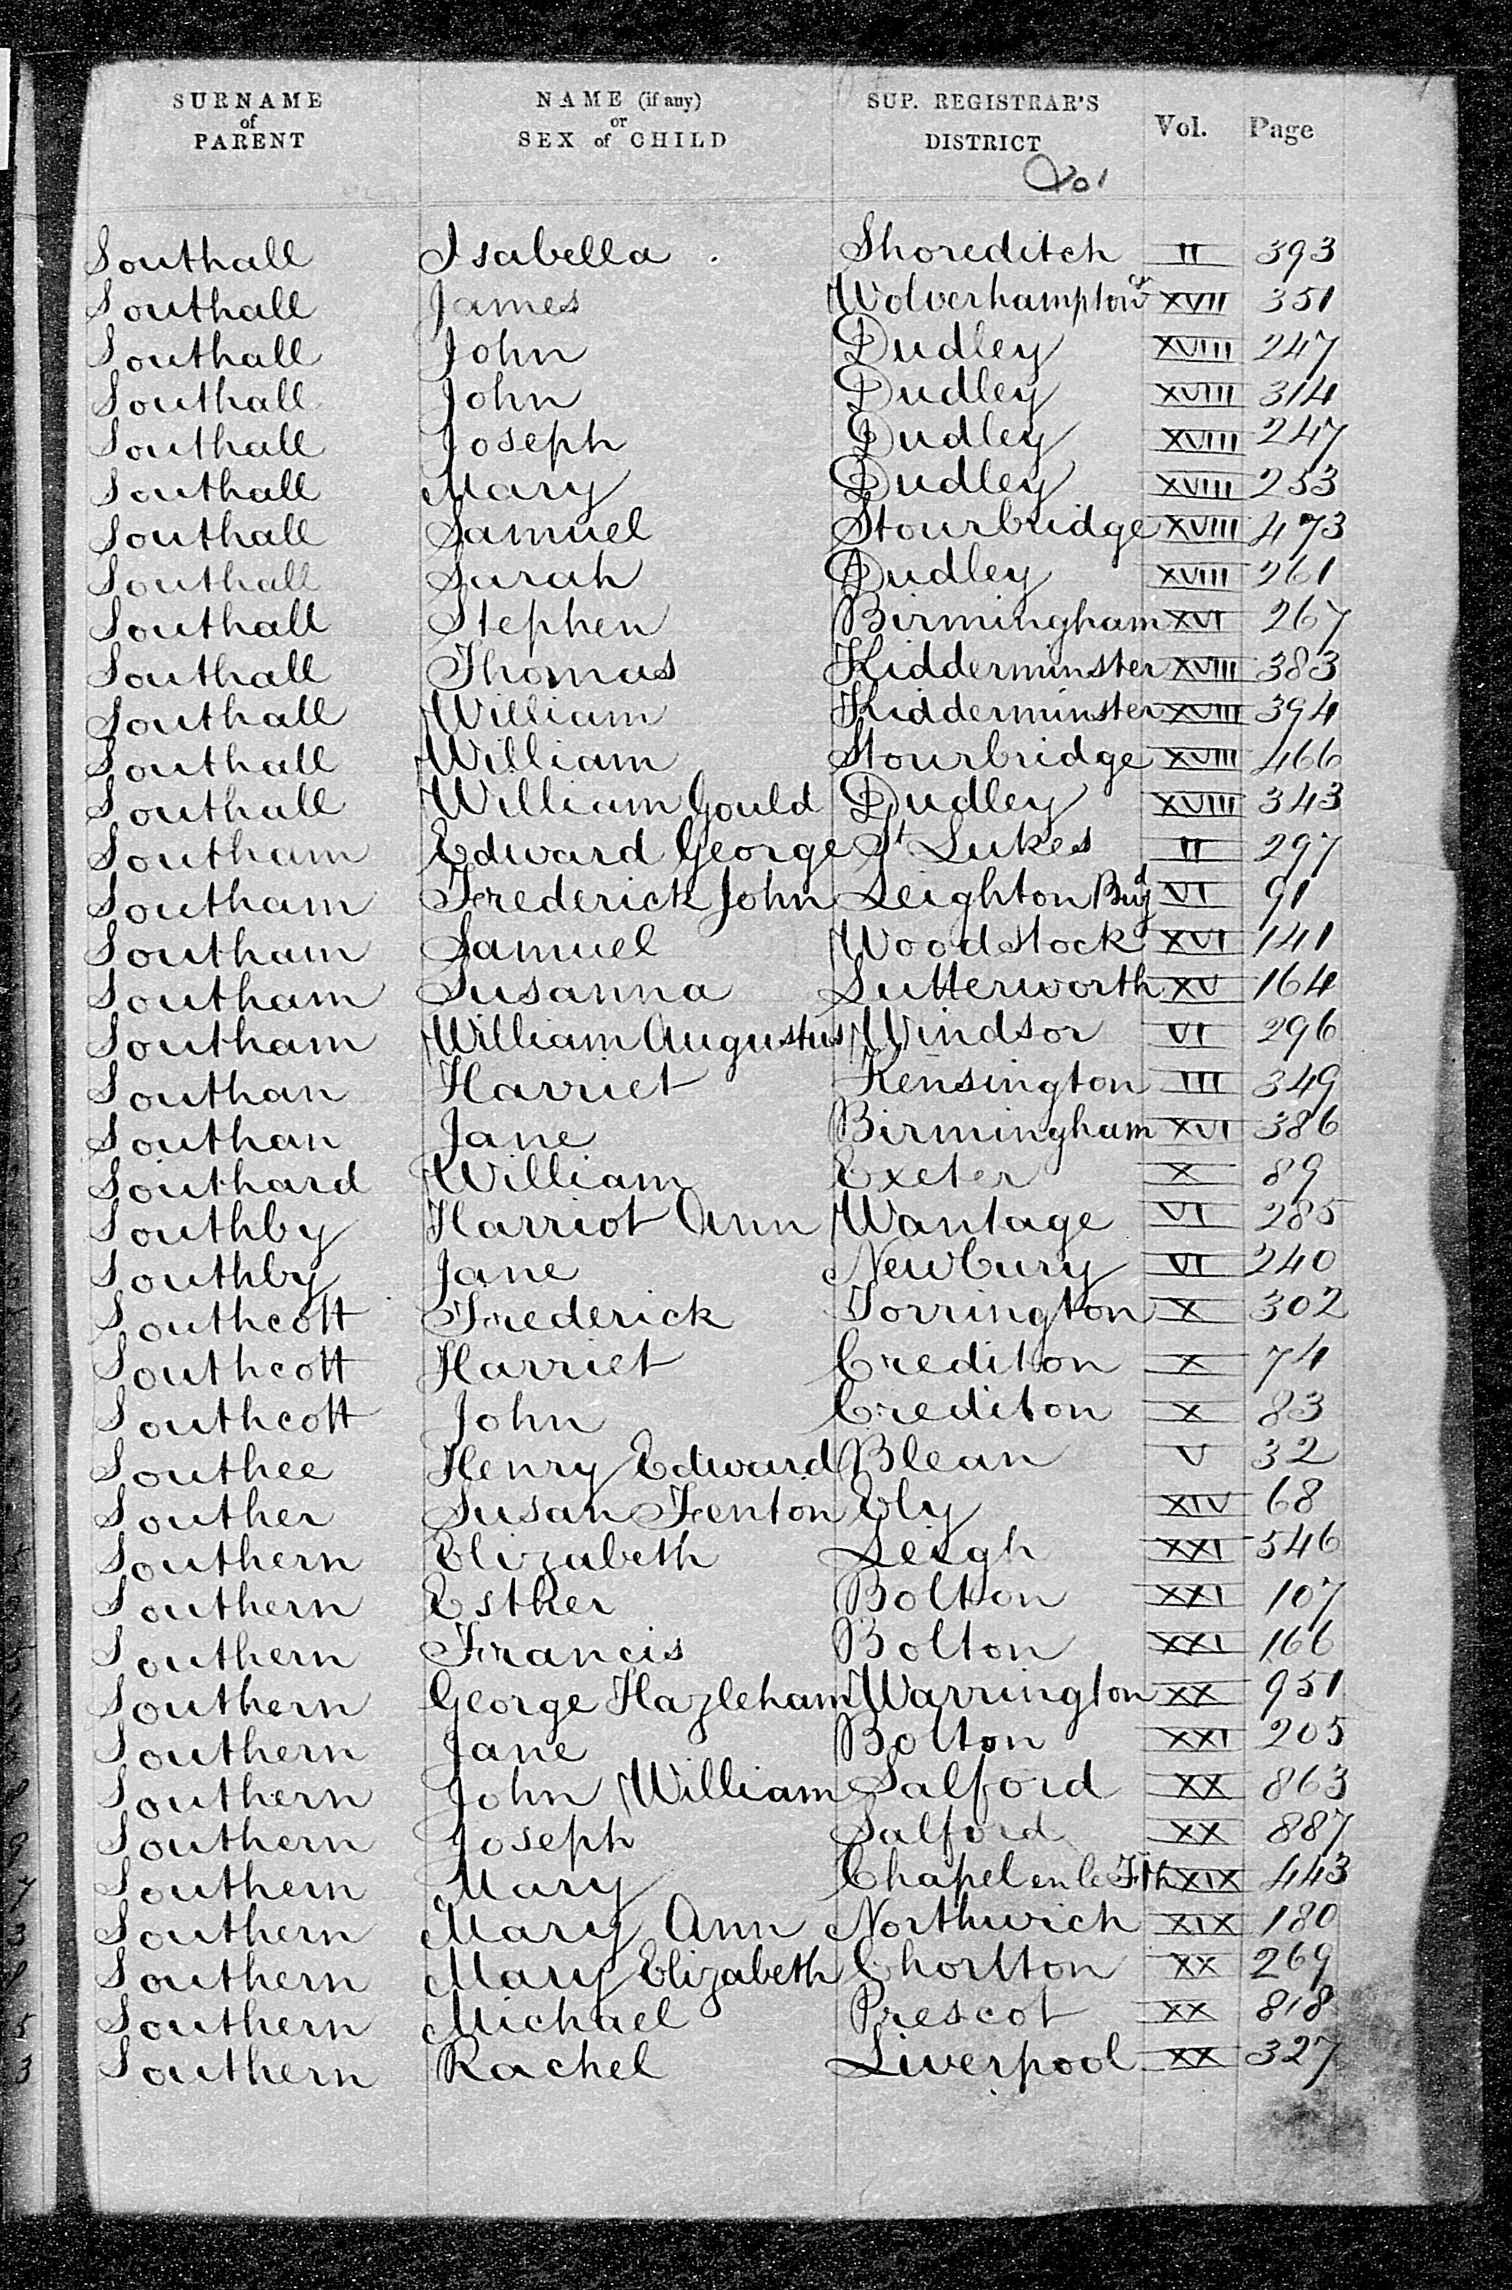 SURNAME of PARENT NAME (if any) or SEX of CHILD SUP. REGISTRAR'S DISTRICT Vol. Page
Southall Isabella Shoreditch II 393
Southall James Wolverhampton XVII 351
Southall John Dudley XVIII 247
Southall John Dudley XVIII 314
Southall Joseph Dudley XVIII 247
Southall Mary Dudley XVIII 253
Southall Samuel Stourbridge XVIII 473
Southall Sarah Dudley XVIII 261
Southall Stephen Birmingham XVI 267
Southall Thomas Kidderminster XVIII 383
Southall William Kidderminster XVIII 394
Southall William Stourbridge XVIII 466
Southall William Gould Dudley XVIII 343
Southam Edward George St Lukes II 297
Southam Frederick John Leighton Buzd VI 91
Southam Samuel Woodstock XVI 141
Southam Susanna Lutterworth XV 164
Southam William Augustus Windsor VI 296
Southan Harriet Kensington III 349
Southan Jane Birmingham XVI 386
Southard William Exeter X 89
Southby Harriot Ann Wantage VI 285
Southby Jane Newbury VI 240
Southcott Frederick Torrington X 302
Southcott Harriet Crediton X 74
Southcott John Crediton X 83
Southee Henry Edward Blean V 32
Souther Susan Fenton Ely XIV 68
Southern Elizabeth Leigh XXI 546
Southern Esther Bolton XXI 107
Southern Francis Bolton XXI 166
Southern George Hazleham Warrington XX 951
Southern Jane Bolton XXI 205
Southern John William Salford XX 863
Southern Joseph Salford XX 887
Southern Mary Chapel en le Fth XIX 443
Southern Mary Ann Northwich XIX 180
Southern Mary Elizabeth Chorlton XX 269
Southern Michael Prescot XX 818
Southern Rachel Liverpool XX 327